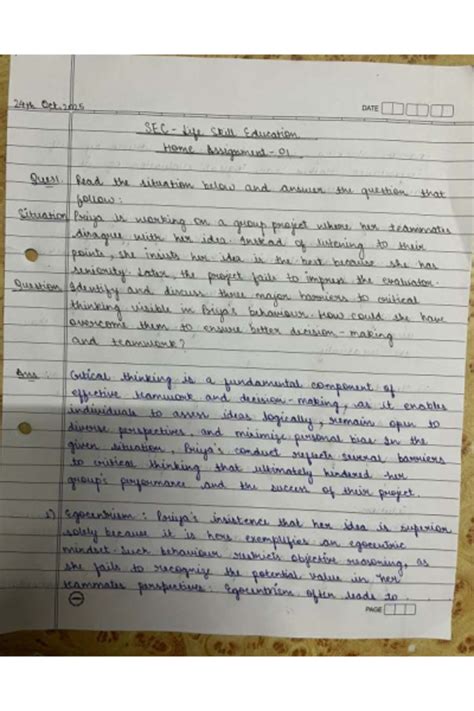 24th Oct, 2025
DATE
SEC - Life Skill Education
Home Assignment - 01
Ques1. Read the situation below and answer the question that
follow:
Situation Priya is working on a group project where her teammates
disagree with her idea. Instead of listening to their
points, she insists her idea is the best because she has
seniority. Later, the project fails to impress the evaluator.
Question: Identify and discuss three major barriers to critical
thinking visible in Priya's behaviour. How could she have
overcome them to ensure better decision-making
and teamwork?
Ans: Critical thinking is a fundamental component of
effective teamwork and decision-making, as it enables
individuals to assess ideas logically, remain open to
diverse perspectives, and minimize personal bias. In the
given situation, Priya's conduct reflects several barriers
to critical thinking that ultimately hindered her
group's performance and the success of their project.
1) Egocentrism: Priya's insistence that her idea is superior
solely because it is hers exemplifies an egocentric
mindset. Such behaviour restricts objective reasoning, as
she fails to recognize the potential value in her
teammates perspectives. Egocentrism often leads to
PAGE